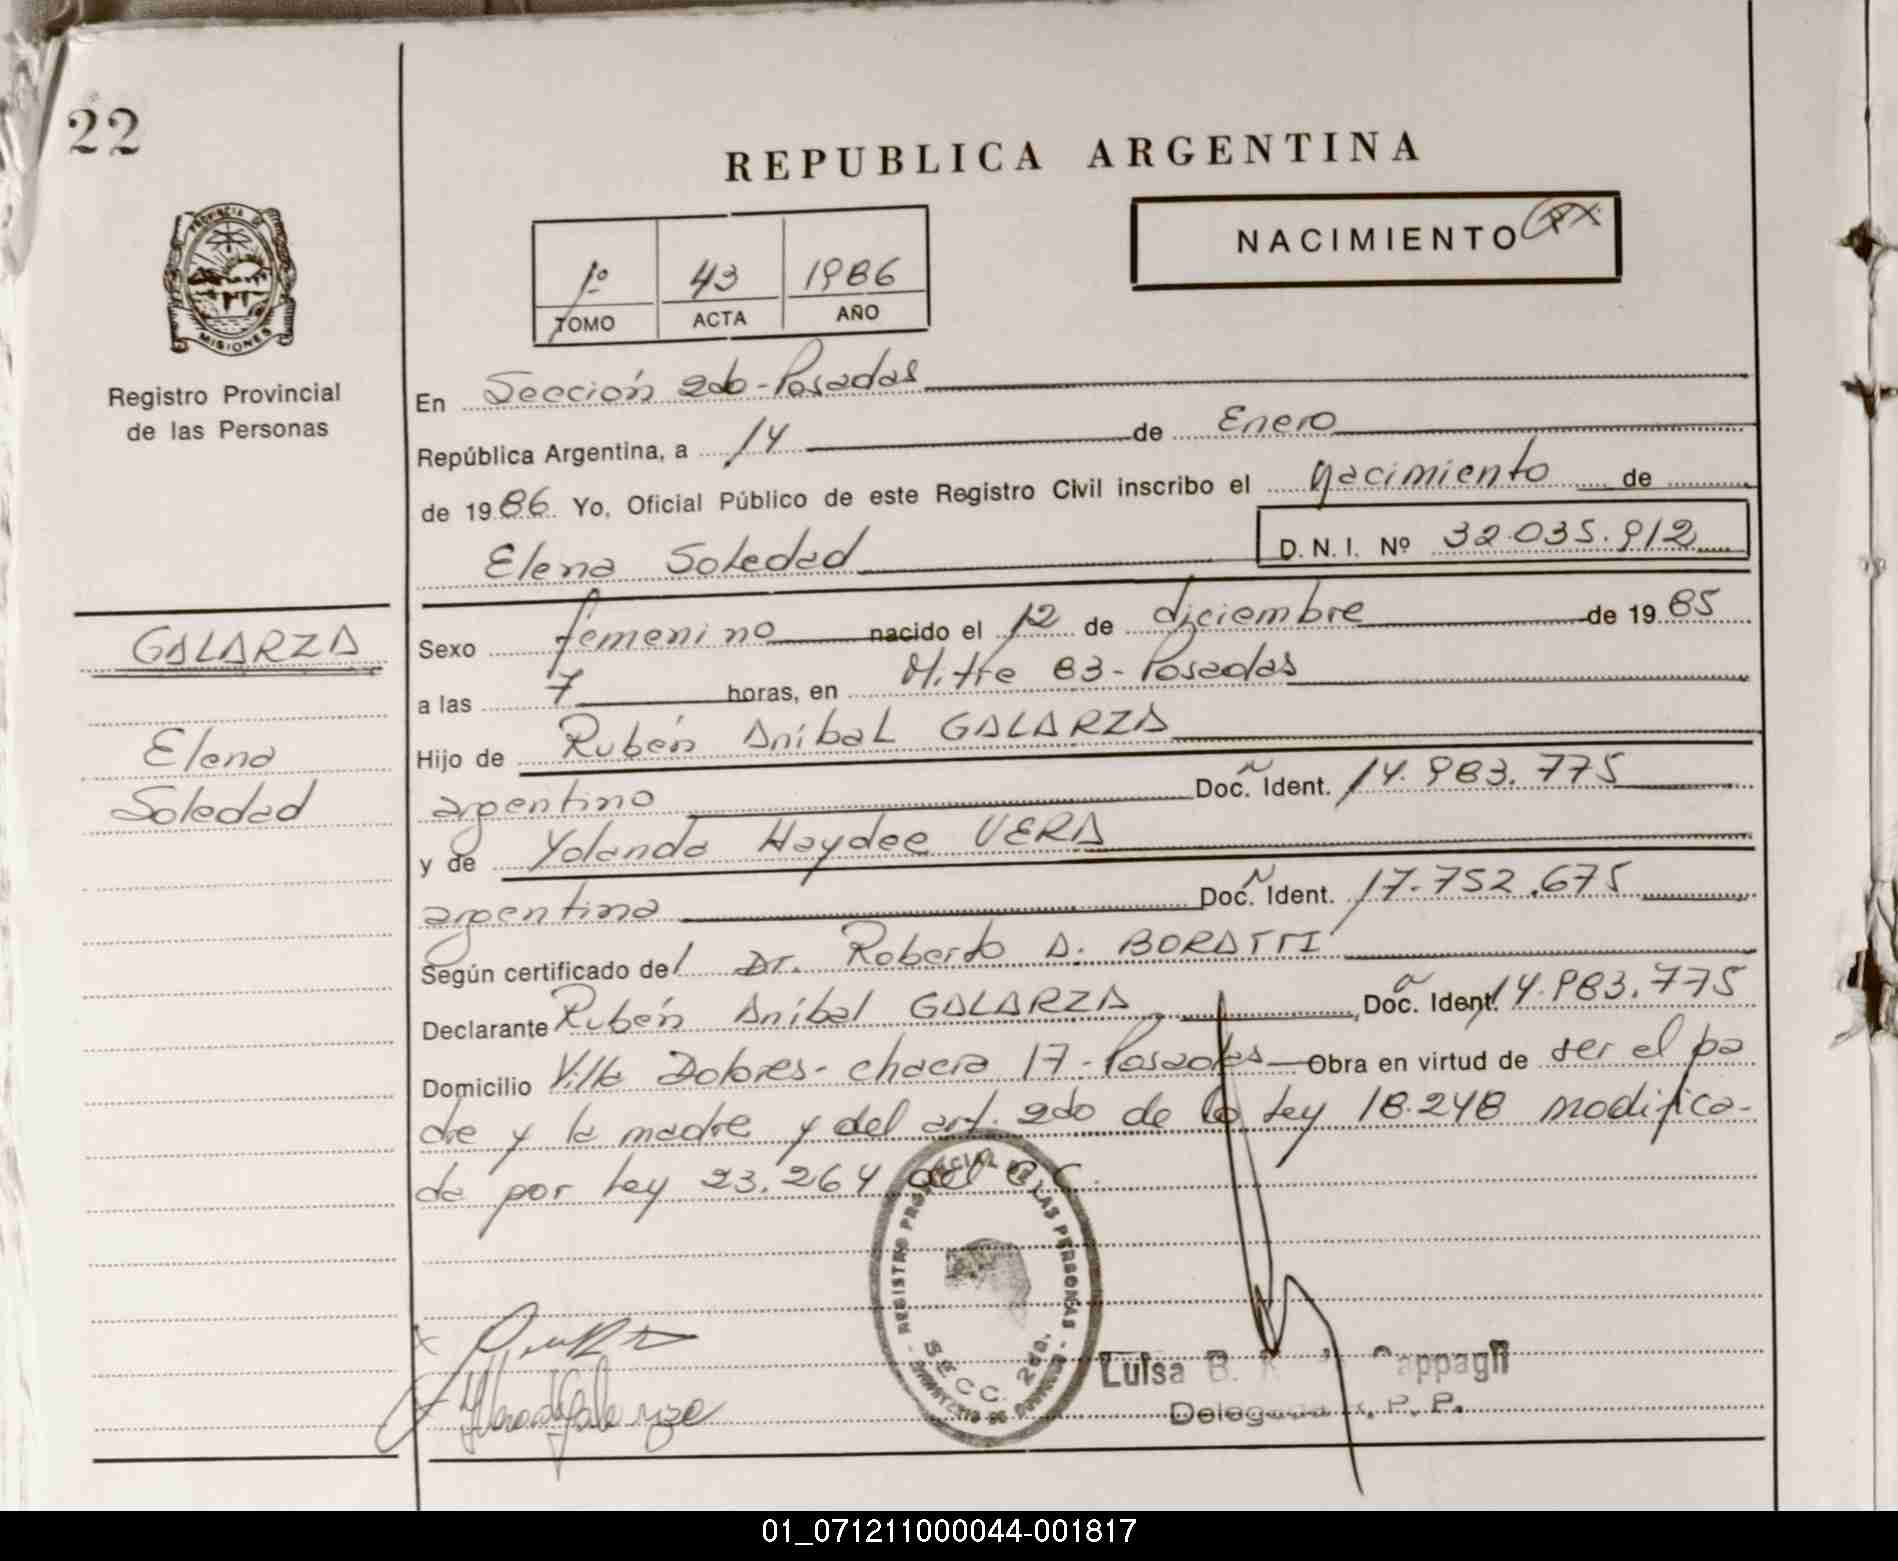 22
REPUBLICA ARGENTINA
PROVINCIA DE
MISIONES
Registro Provincial
de las Personas
1º 43 1986
TOMO ACTA AÑO
NACIMIENTO
En Sección 2da-Posadas
República Argentina, a 14 de Enero
de 1986 Yo, Oficial Público de este Registro Civil inscribo el nacimiento de
Elena Soledad D. N. I. Nº 32.035.912
GALARZA
Elena
Soledad
Sexo femenino nacido el 12 de diciembre de 1985
a las 7 horas, en Mitre 83-Posadas
Hijo de Rubén Aníbal GALARZA
argentino Doc. Ident. 14.983.775
y de Yolanda Haydee VERA
argentina Doc. Ident. 17.752.675
Según certificado del Dr. Roberto A. BORATTI
Declarante Rubén Aníbal GALARZA, Doc. Ident. 14.983.775
Domicilio Villa Dolores-chacra 17-Posadas Obra en virtud de ser el pa
dre y la madre y del art. 2do de la ley 18.248 modifica-
da por ley 23.264 del C.C.
REGISTRO PROVINCIAL DE LAS PERSONAS
SECC. 2da.
Luisa B. Cappagli
Delegada R. P. P.
01_071211000044-001817